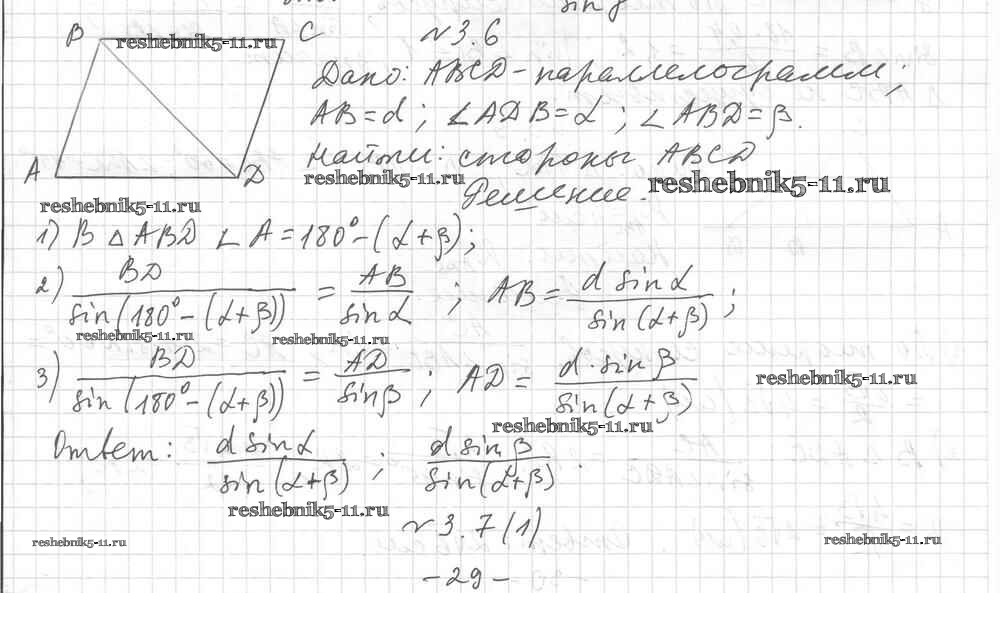 sin γ
B reshebnik5-11.ru C
№3.6
Дано: ABCD-параллелограмм;
AB=d; ∠ADB=α; ∠ABD=β.
Найти: стороны ABCD
A D reshebnik5-11.ru reshebnik5-11.ru
reshebnik5-11.ru Решение.
1) В △ABD ∠A=180°-(α+β);
2) BD/sin(180°-(α+β)) = AB/sin α; AB = d sin α/sin(α+β);
reshebnik5-11.ru reshebnik5-11.ru
3) BD/sin(180°-(α+β)) = AD/sin β; AD = d·sin β/sin(α+β)
reshebnik5-11.ru
reshebnik5-11.ru
Ответ: d sin α/sin(α+β); d sin β/sin(α+β).
reshebnik5-11.ru
№3.7(1)
reshebnik5-11.ru reshebnik5-11.ru
-29-